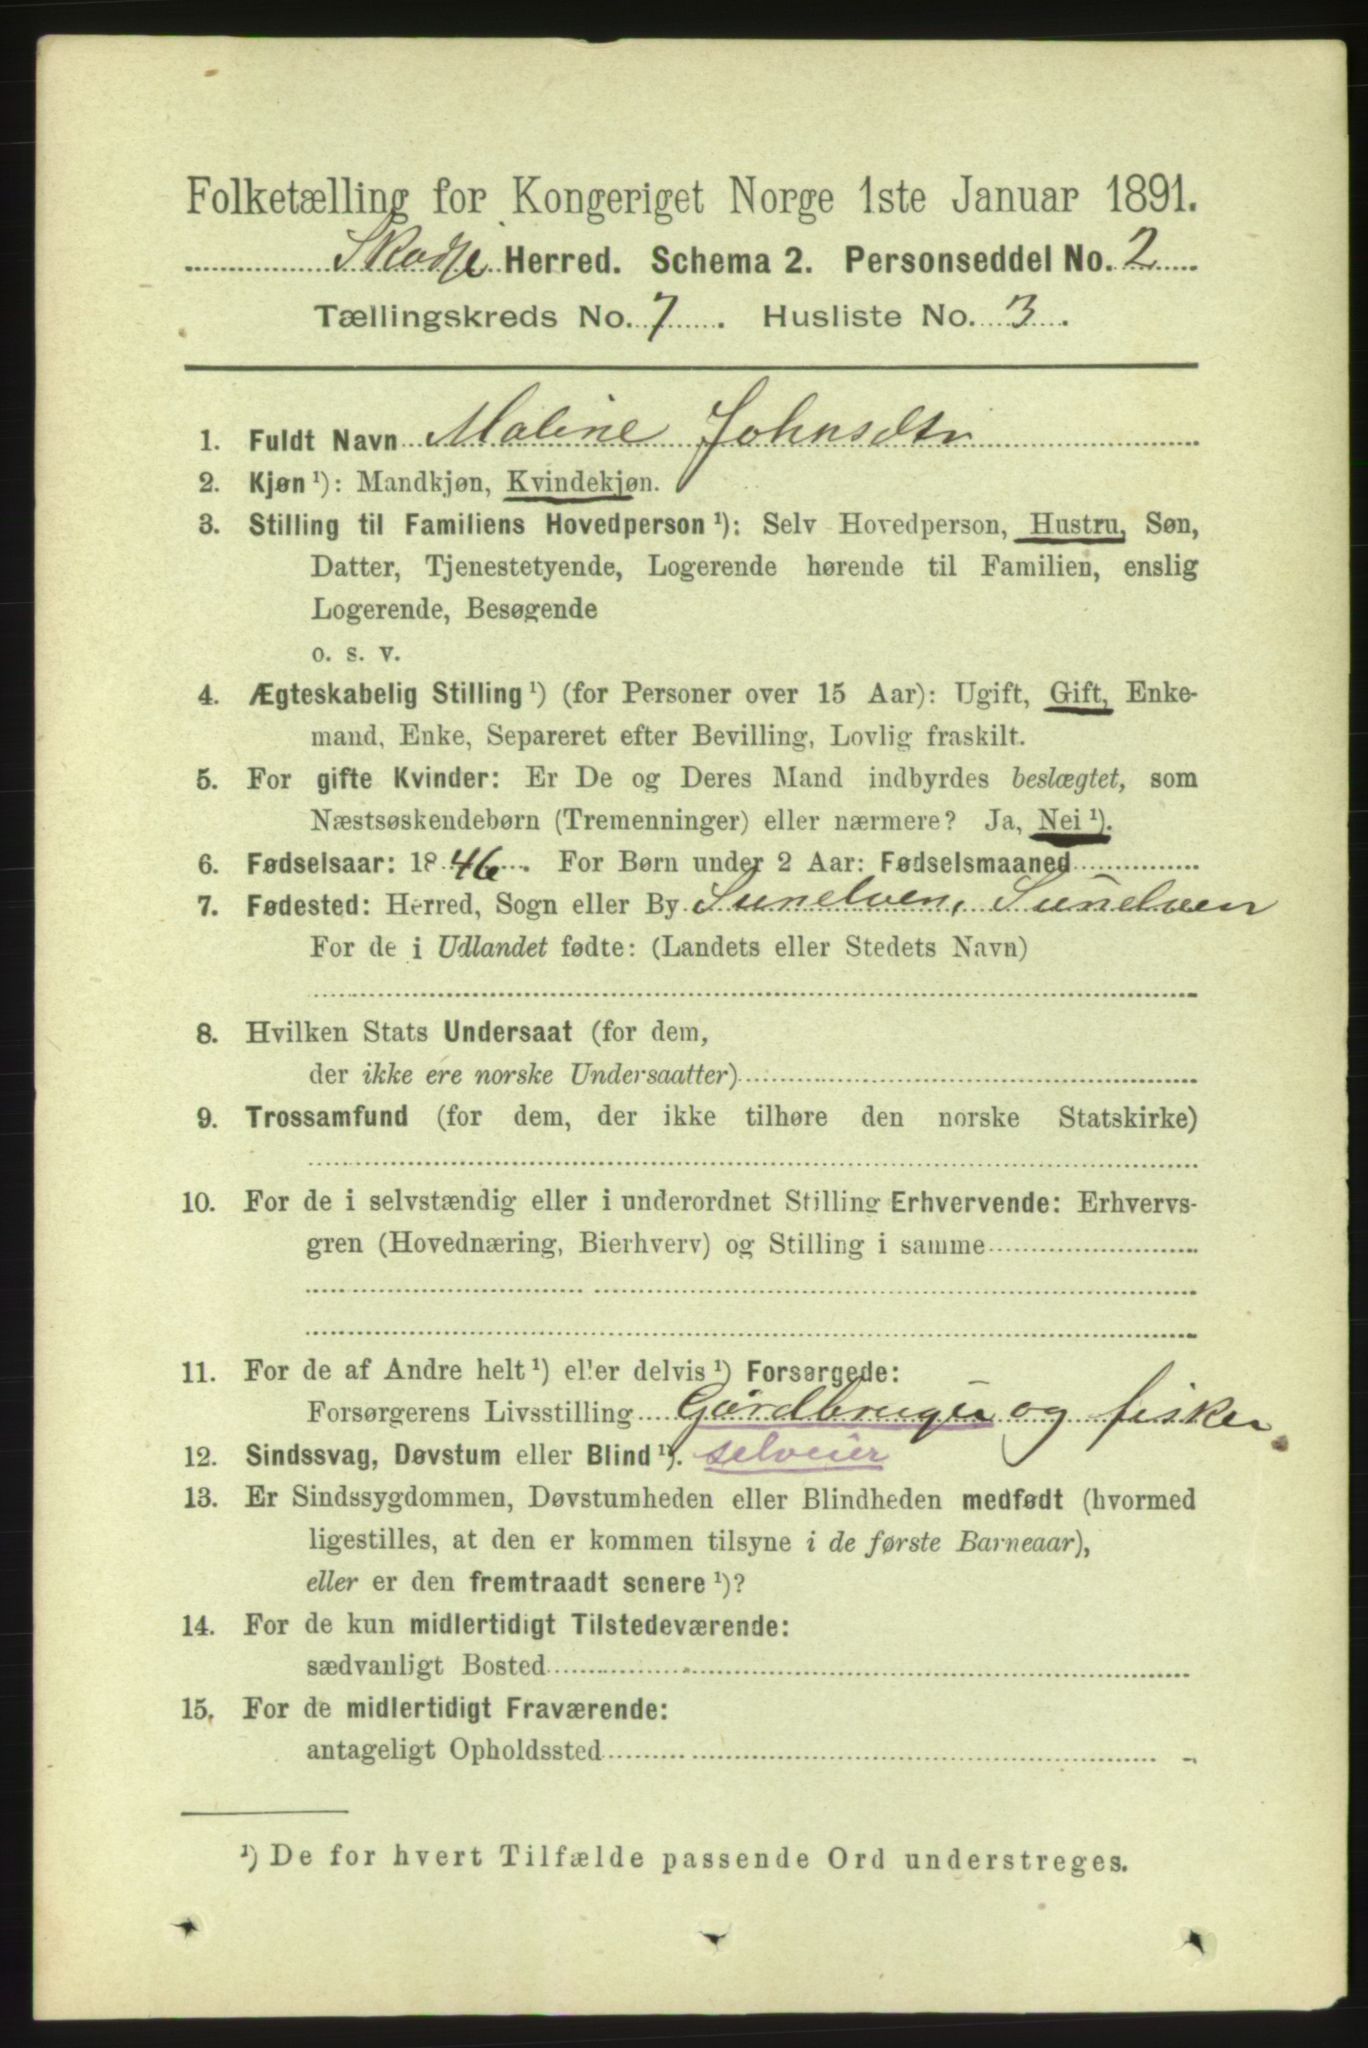 Folketælling for Kongeriget Norge 1ste Januar 1891.
Skodje Herred. Schema 2. Personseddel No. 2
Tællingskreds No. 7. Husliste No. 3.
1. Fuldt Navn Maline Johnsdtr
2. Kjøn ¹): Mandkjøn, Kvindekjøn.
3. Stilling til Familiens Hovedperson ¹): Selv Hovedperson, Hustru, Søn,
Datter, Tjenestetyende, Logerende hørende til Familien, enslig
Logerende, Besøgende
o. s. v.
4. Ægteskabelig Stilling ¹) (for Personer over 15 Aar): Ugift, Gift, Enke-
mand, Enke, Separeret efter Bevilling, Lovlig fraskilt.
5. For gifte Kvinder: Er De og Deres Mand indbyrdes beslægtet, som
Næstsøskendebørn (Tremenninger) eller nærmere? Ja, Nei ¹).
6. Fødselsaar: 1846. For Børn under 2 Aar: Fødselsmaaned
7. Fødested: Herred, Sogn eller By Sunelven, Sunelven
For de i Udlandet fødte: (Landets eller Stedets Navn)
8. Hvilken Stats Undersaat (for dem,
der ikke ere norske Undersaatter)
9. Trossamfund (for dem, der ikke tilhøre den norske Statskirke)
10. For de i selvstændig eller i underordnet Stilling Erhvervende: Erhvervs-
gren (Hovednæring, Bierhverv) og Stilling i samme
11. For de af Andre helt ¹) eller delvis ¹) Forsørgede:
Forsørgerens Livsstilling Gårdbruger og fisker
12. Sindssvag, Døvstum eller Blind ¹). selveier
13. Er Sindssygdommen, Døvstumheden eller Blindheden medfødt (hvormed
ligestilles, at den er kommen tilsyne i de første Barneaar),
eller er den fremtraadt senere ¹)?
14. For de kun midlertidigt Tilstedeværende:
sædvanligt Bosted
15. For de midlertidigt Fraværende:
antageligt Opholdssted
¹) De for hvert Tilfælde passende Ord understreges.